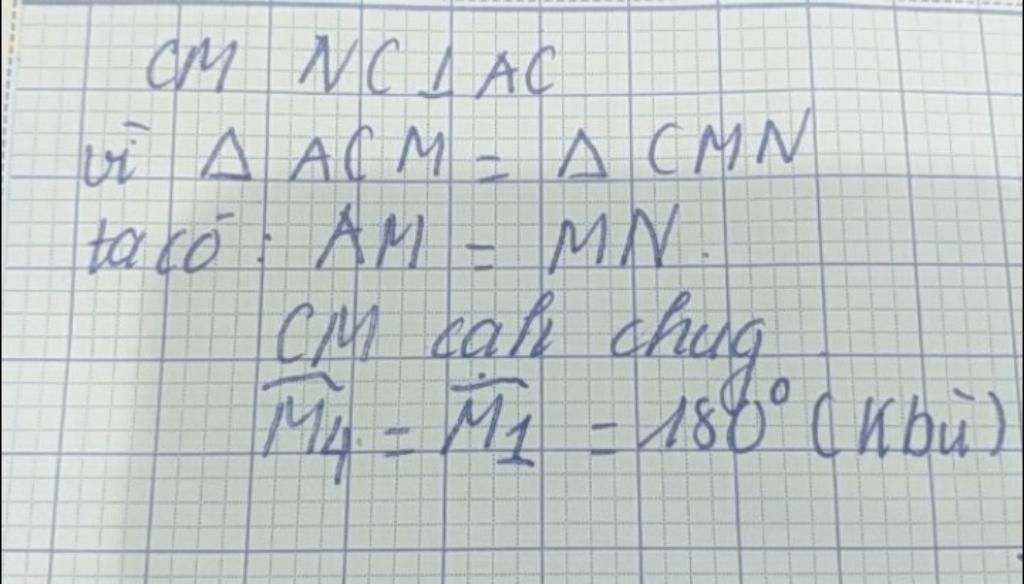 CM NC ⊥ AC
vì Δ ACM = Δ CMN
ta có : AM = MN.
CM cạh chug
M̂4 = M̂1 = 180° (Kbù)